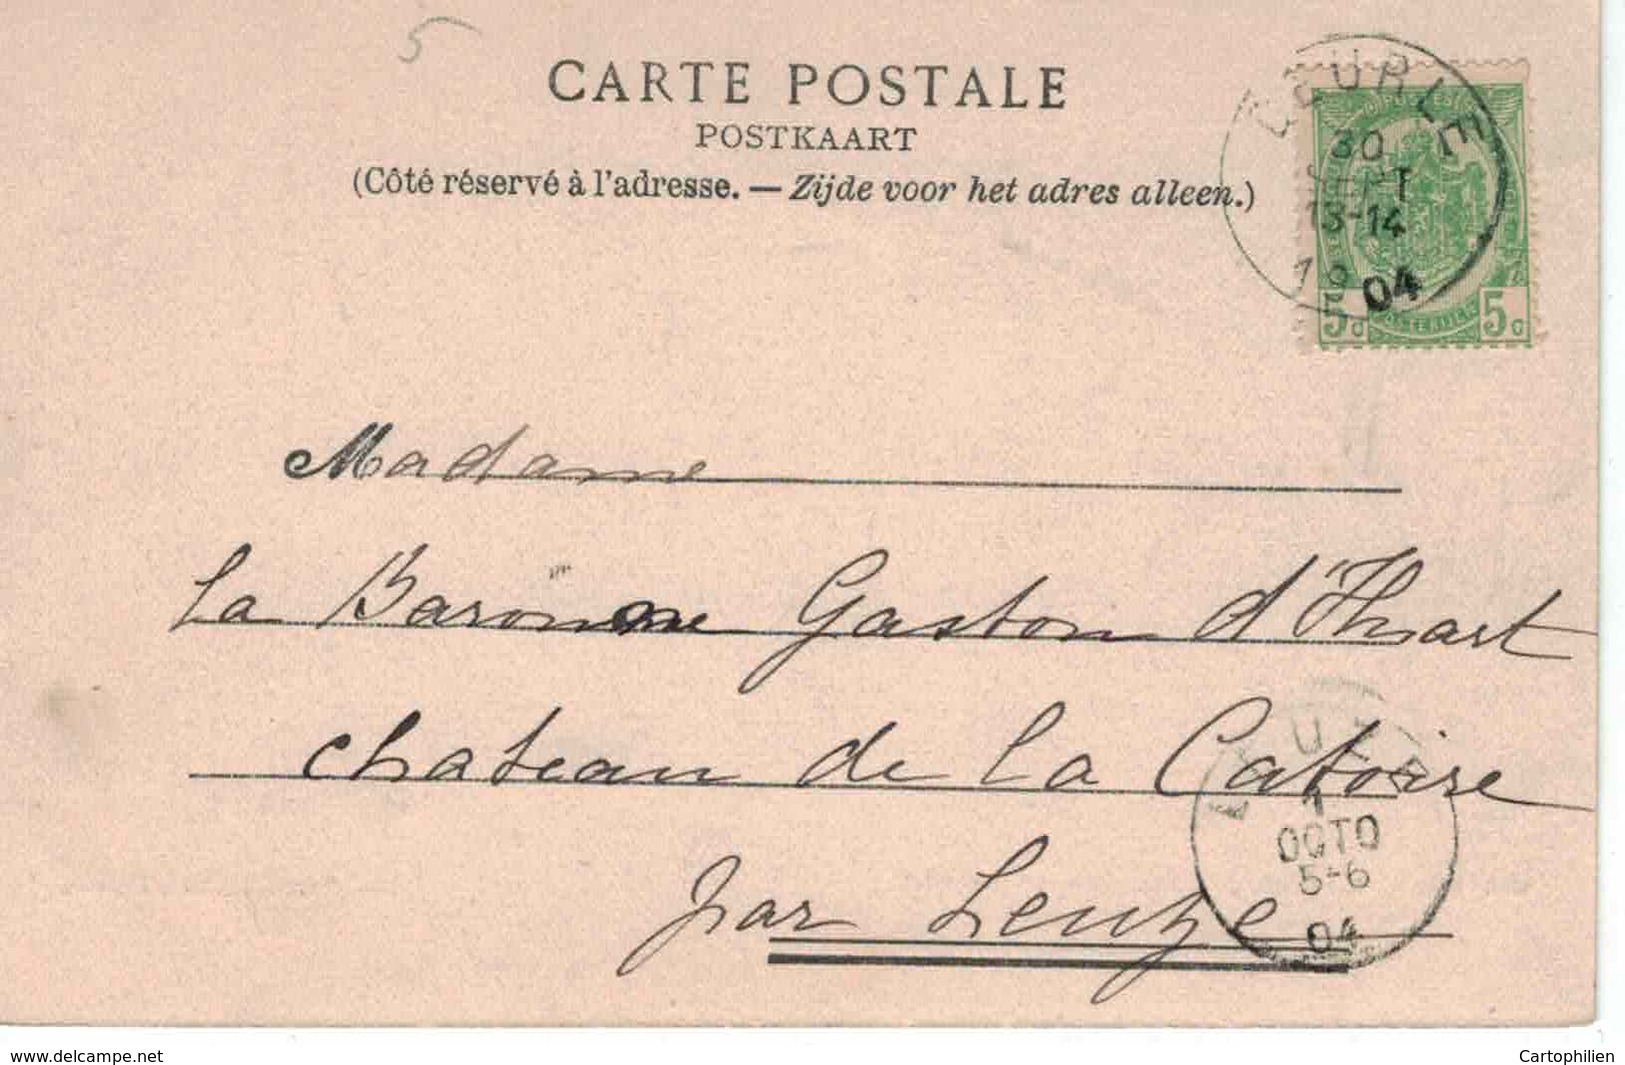 5
CARTE POSTALE
POSTKAART
(Côté réservé à l'adresse. — Zijde voor het adres alleen.)
DEURLE
30
SEPT
13-14
04
5c 5c
Madame
La Baronne Gaston d'Huart
chateau de la Catoire
par Leuze
LEUZE
1
OCTO
5-6
04
www.delcampe.net
Cartophilien